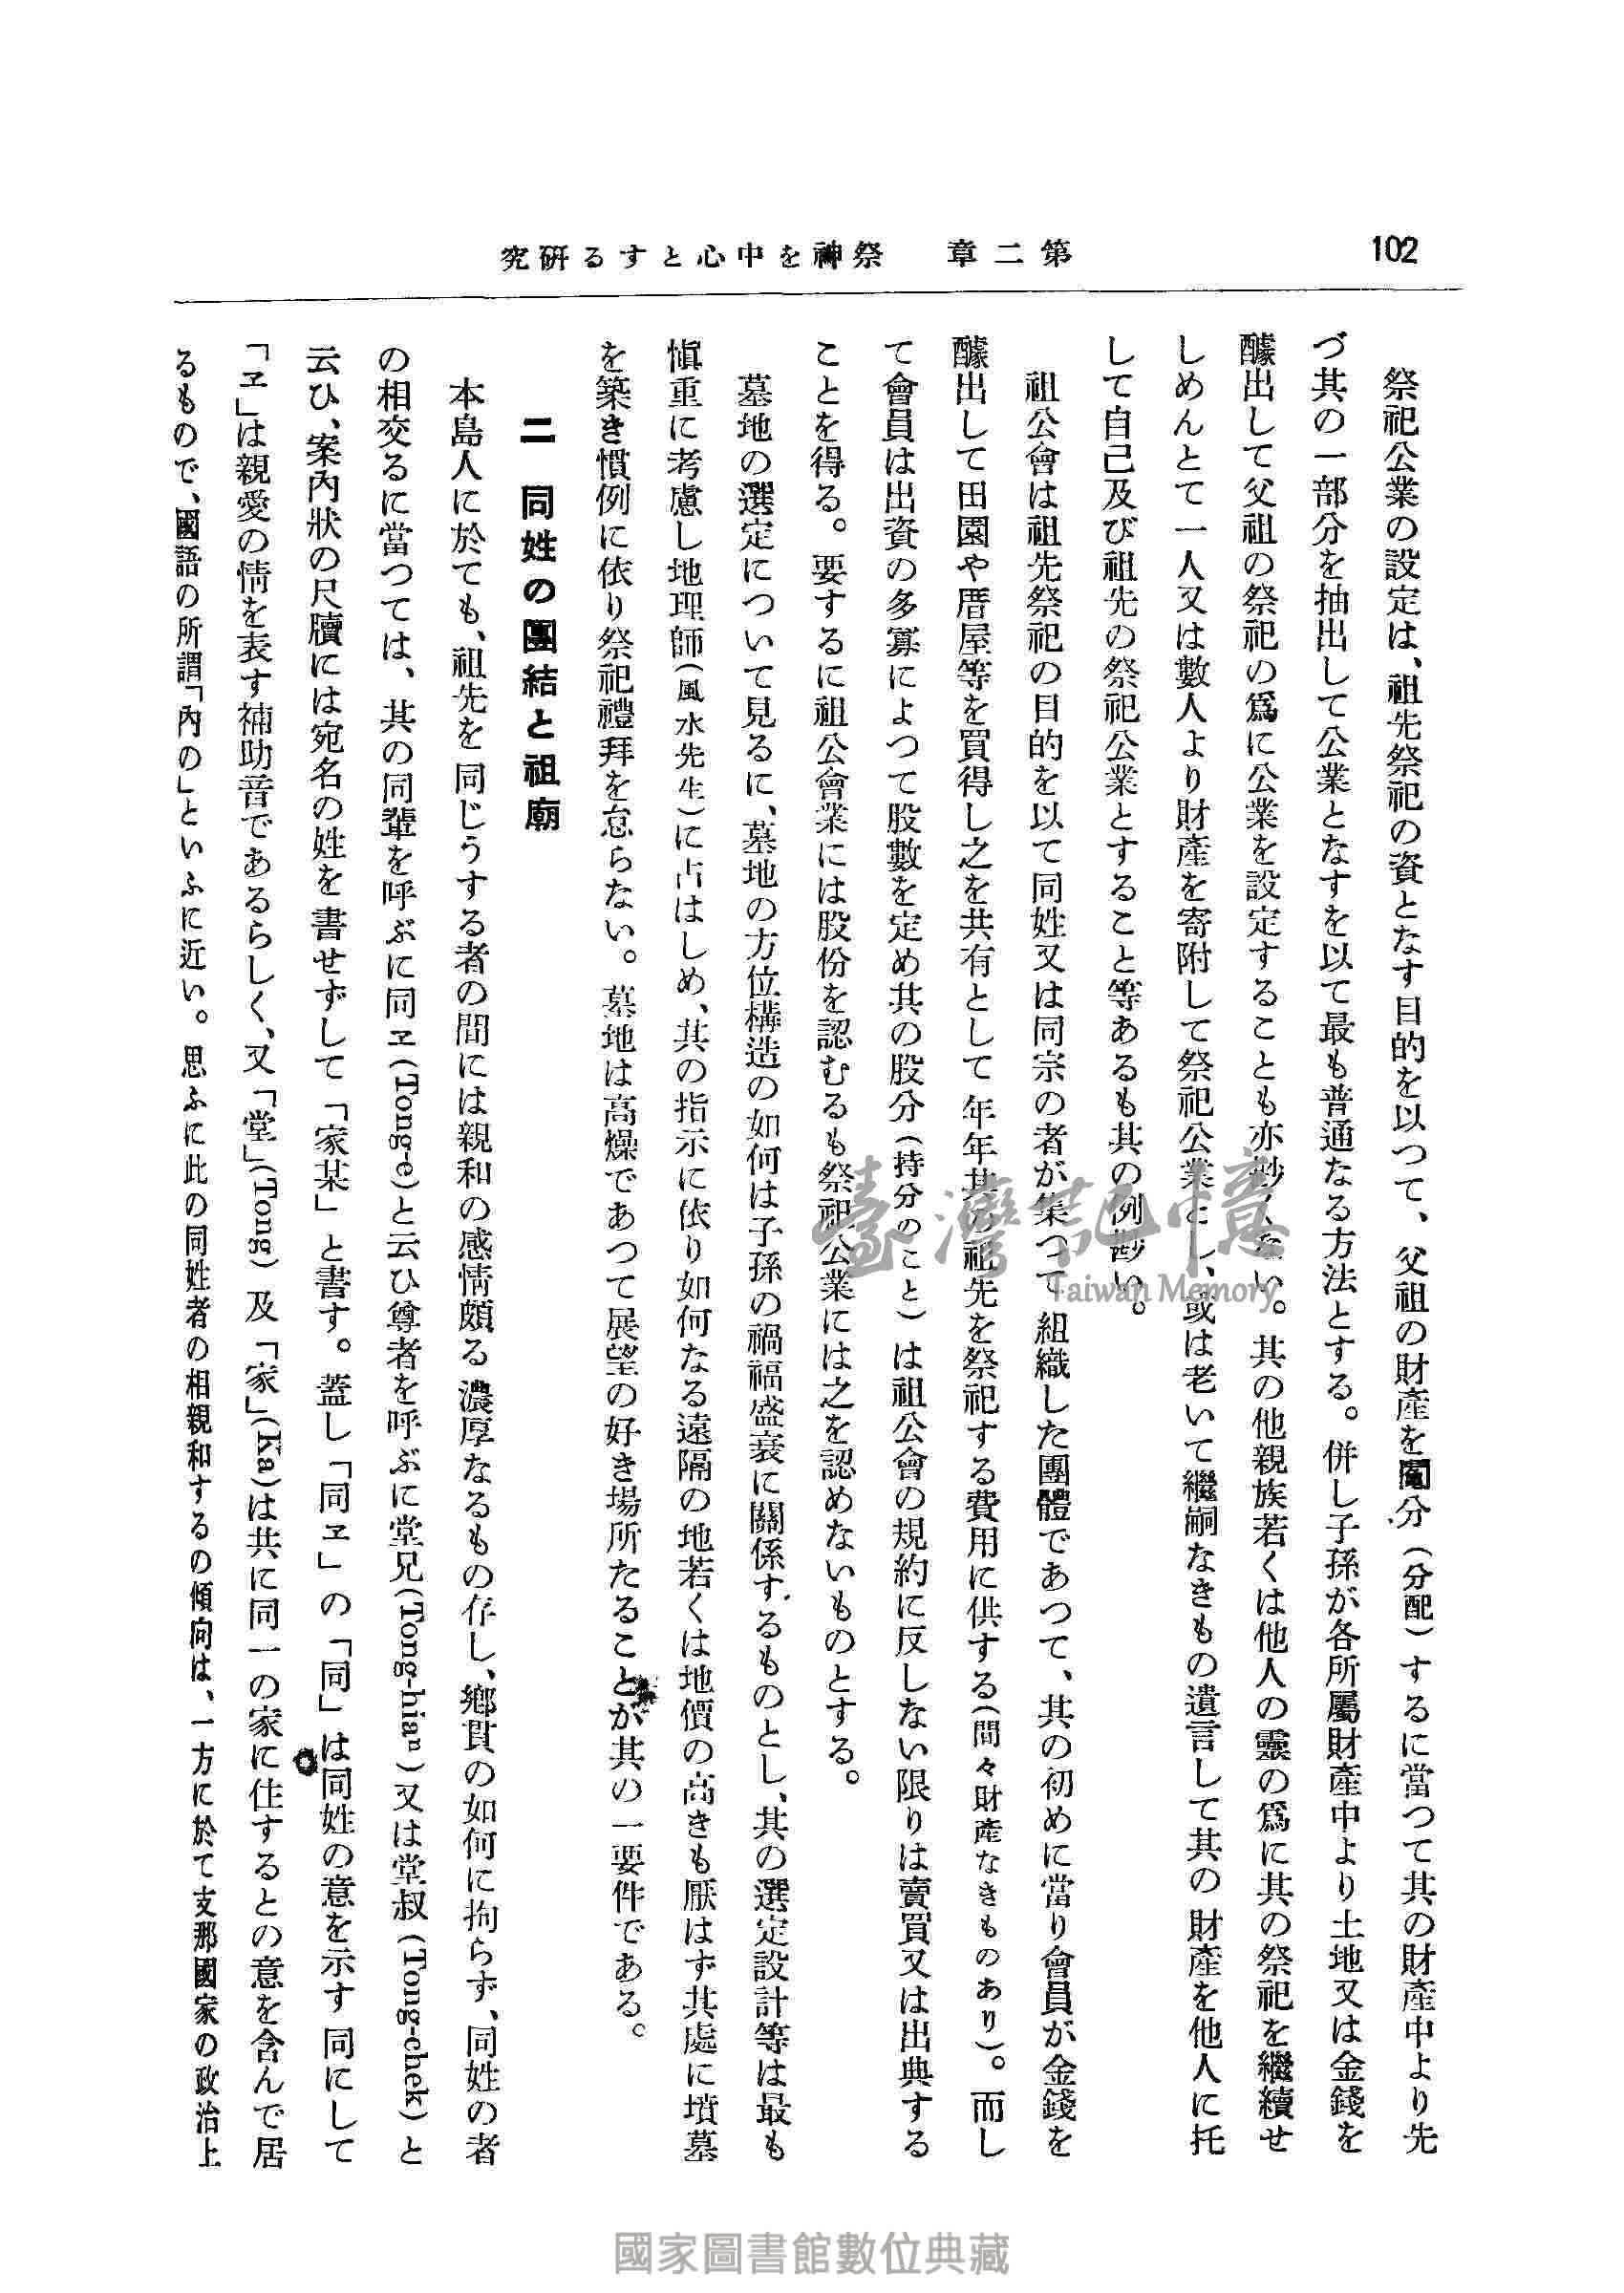 102
第二章　祭神を中心とする硏究
祭祀公業の設定は、祖先祭祀の資となす目的を以つて、父祖の財產を鬮分（分配）するに當つて其の財產中より先
づ其の一部分を抽出して公業となすを以て最も普通なる方法とする。併し子孫が各所屬財產中より土地又は金錢を
醵出して父祖の祭祀の爲に公業を設定することも亦尠くない。其の他親族若くは他人の靈の爲に其の祭祀を繼續せ
しめんとて一人又は數人より財產を寄附して祭祀公業とし、或は老いて繼嗣なきもの遺言して其の財產を他人に托
して自己及び祖先の祭祀公業とすること等あるも其の例尠い。
祖公會は祖先祭祀の目的を以て同姓又は同宗の者が集つて組織した團體であつて、其の初めに當り會員が金錢を
醵出して田園や厝屋等を買得し之を共有として年年其の祖先を祭祀する費用に供する（間々財產なきものあり）。而し
て會員は出資の多寡によつて股數を定め其の股分（持分のこと）は祖公會の規約に反しない限りは賣買又は出典する
ことを得る。要するに祖公會業には股份を認むるも祭祀公業には之を認めないものとする。
墓地の選定について見るに、墓地の方位構造の如何は子孫の禍福盛衰に關係するものとし、其の選定設計等は最も
愼重に考慮し地理師（風水先生）に占はしめ、其の指示に依り如何なる遠隔の地若くは地價の高きも厭はず其處に墳墓
を築き慣例に依り祭祀禮拜を怠らない。墓地は高燥であつて展望の好き場所たることが其の一要件である。
二　同姓の團結と祖廟
本島人に於ても、祖先を同じうする者の間には親和の感情頗る濃厚なるもの存し、鄕貫の如何に拘らず、同姓の者
の相交るに當つては、其の同輩を呼ぶに同ヱ（Tong-e）と云ひ尊者を呼ぶに堂兄（Tong-hiaⁿ）又は堂叔（Tong-chek）と
云ひ、案內狀の尺牘には宛名の姓を書せずして「家某」と書す。蓋し「同ヱ」の「同」は同姓の意を示す同にして
「ヱ」は親愛の情を表す補助音であるらしく、又「堂」（Tong）及「家」（Ka）は共に同一の家に住するとの意を含んで居
るもので、國語の所謂「內の」といふに近い。思ふに此の同姓者の相親和するの傾向は、一方に於て支那國家の政治上
臺灣記憶
Taiwan Memory
國家圖書館數位典藏